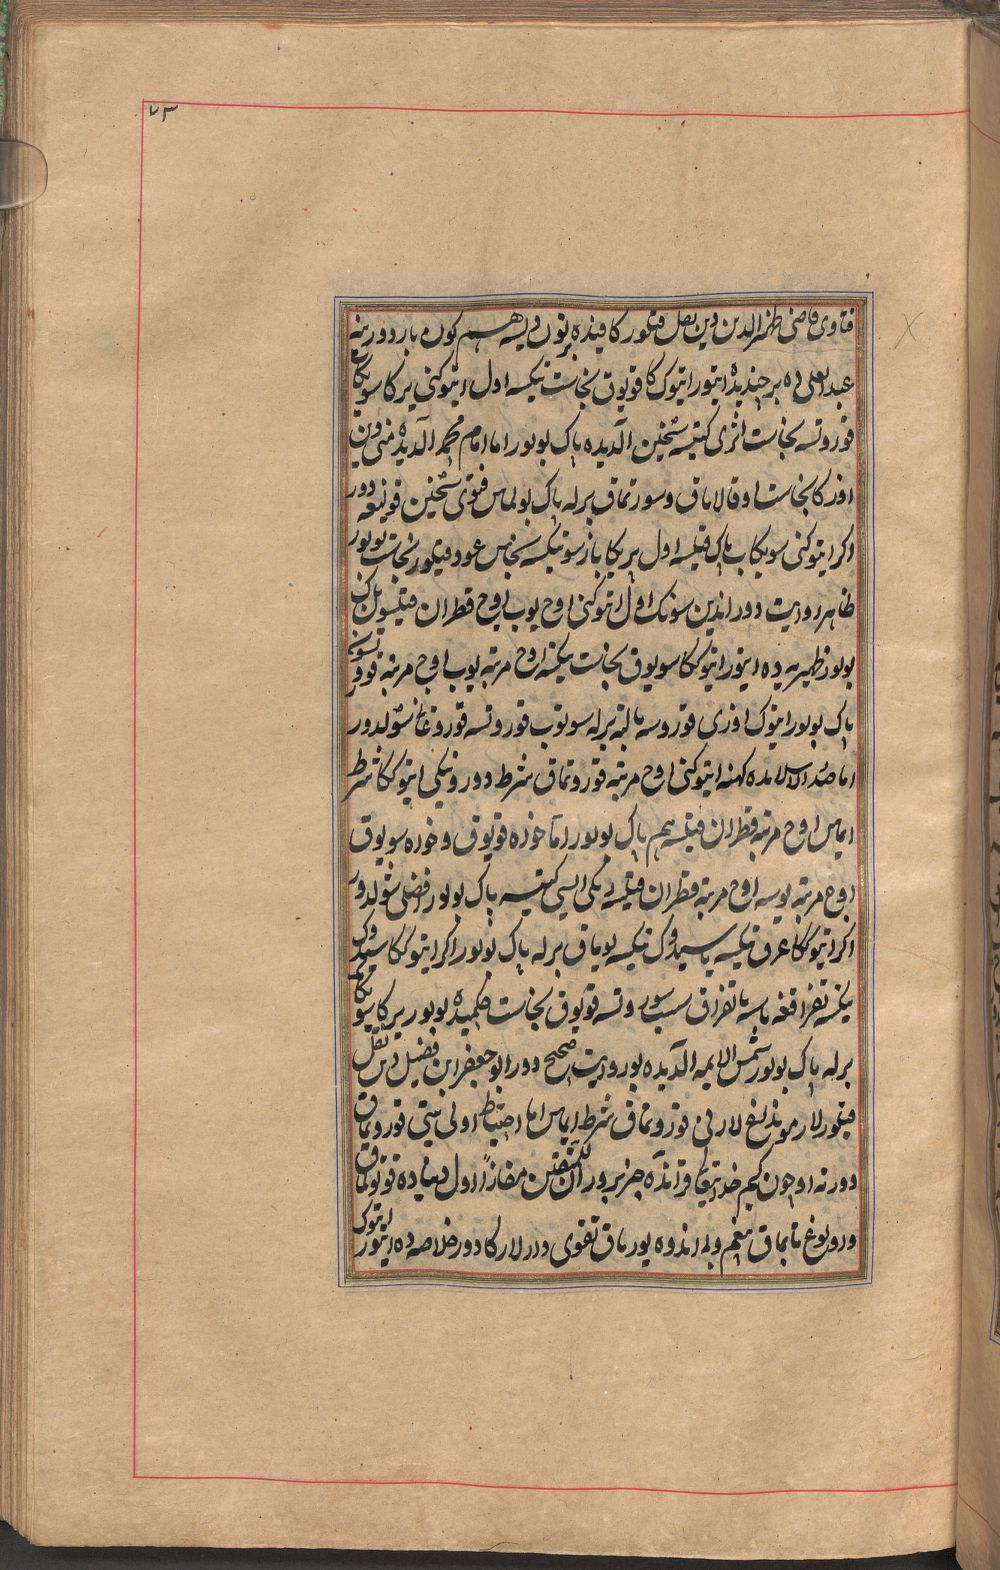 ۷۳
فتاوی قاضی ظهیر الدین دین نقل قیلور کافیده بوتون دیسه هم کوب بار دور ینه
عبد العلی ده برجندیده ایتور ایتوک کا قویوق نجاست تیکسه اول ایتوکنی یرکا سویکاب
قوروتسه نجاست اثری کیتسه شیخین آلدیده پاک بولور اما امام محمد آلدیده منی دین
اوزکا نجاست اوقالاماق و سورتماق برله پاک بولماس فتوی شیخین قولیغه دور
اکر ایتوکنی سویکاب پاک قیلسه اول یریکا باز سو تیکسه نجس عود قیلور نجاست بولور
ظاهر روایت دور اندین سونک اول ایتوکنی اوج یوب اوج قطران قیلسون پاک
بولور ظهیریه ده ایتور ایتوککا سویوق نجاست تیکسه اوج مرتبه یوب اوج مرتبه قوروتسونکه
پاک بولور ایتوک اوزی قوروسه یا لته برله سورتوب قوروتسه قوروغانی شولدور
اما صدر الاسلامده کهنه ایتوکنی اوج مرتبه قوروتماق شرط دور و ینکی ایتوککا شرط
ایماس اوج مرتبه قطران قیلسه هم پاک بولور اما خوده قویوق و خوده سویوق
اوج مرتبه یوسه اوج مرتبه قطران قیلسه نکی ایسی کیتسه پاک بولور افضلی شولدور
اکر ایتوککا عرق تیکسه یا سیدوک تیکسه یوماق برله پاک بولور اکر ایتوککا سیدوک
تیکسه تفراقغه باسه یا تفراق سیب سوروتسه قویوق نجاست حکمیده بولور یرکا سویکاماک
برله پاک بولور شمس الایمه آلدیده بو روایت صحیح دور ابو جعفر ابن فضیل دین نقل
قیلورلار مونداغ لارنی قوروتماق شرط ایماس اما احتیاط اولی سیتی قوروتماق
دور نه اوجون کیم خدایتعالی قرآنده خبر بیرور ان للمتقین مفازا اول دنیاده قوتولماق
و اولوغ تابماق نغم ولی اندوه یورماق تقوی دارلارکا دور خلاصه ده ایتور ایتوک